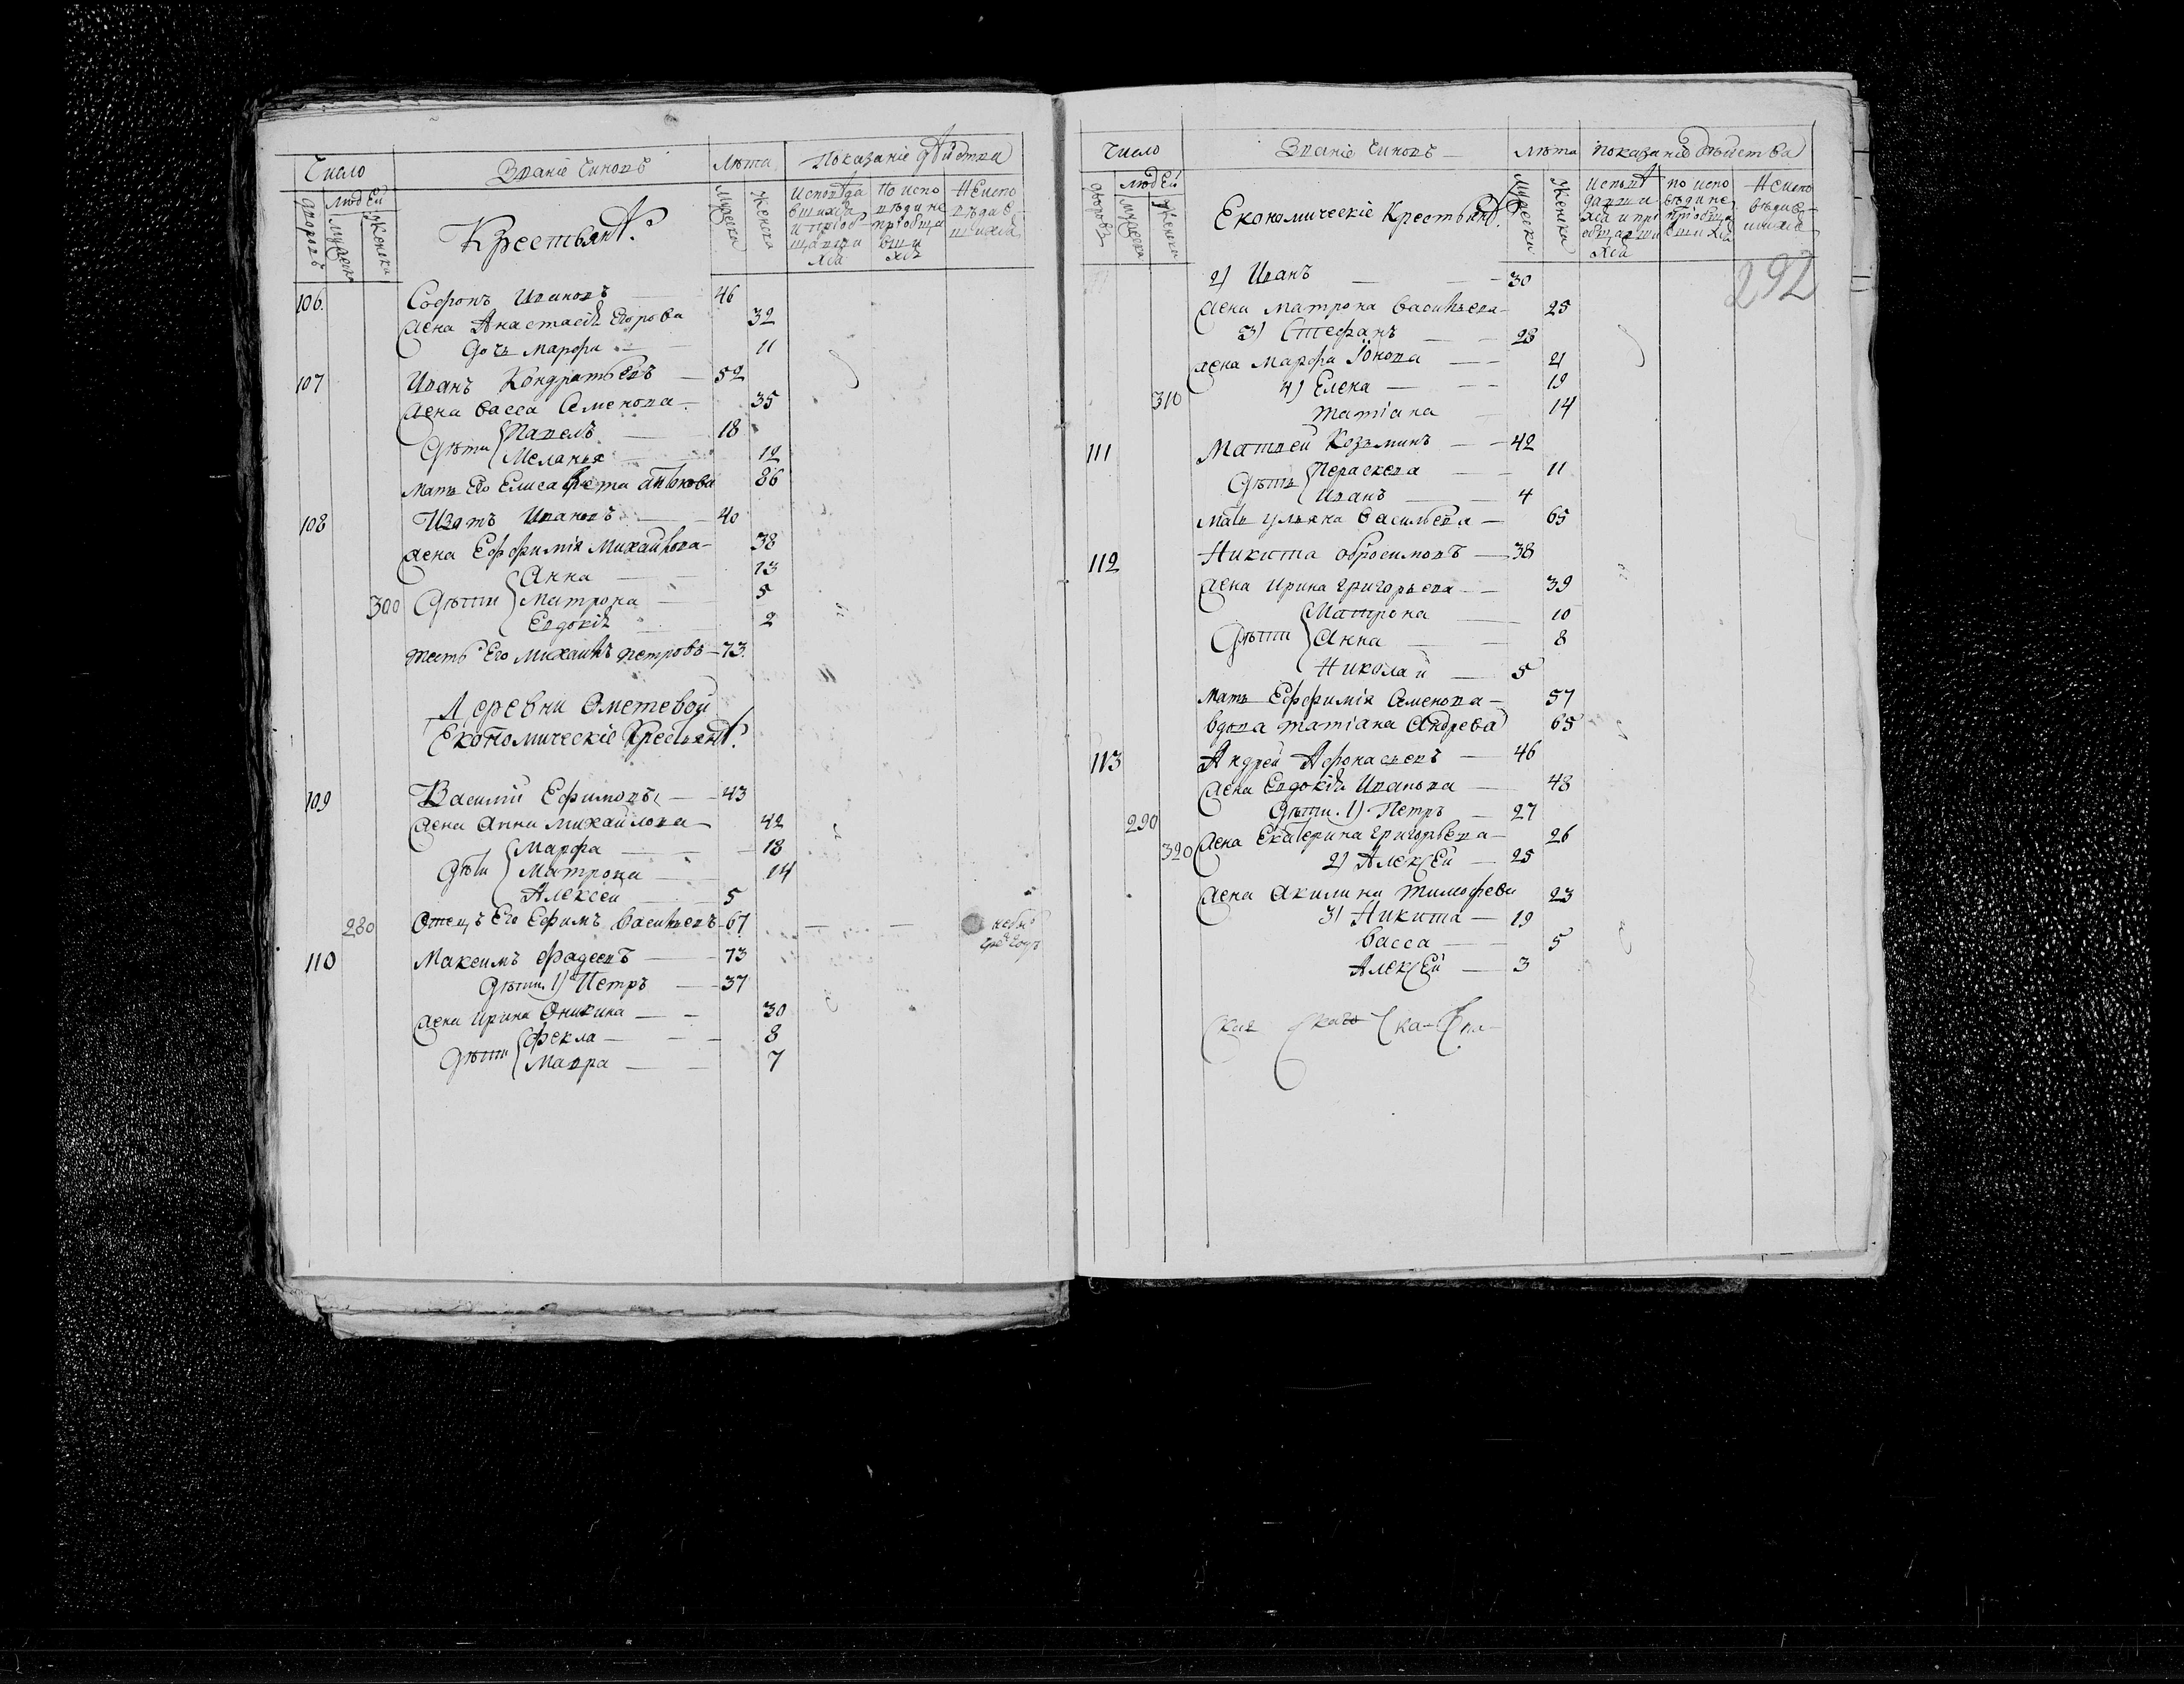 Число Званіе Чиновъ Лѣта Показаніе дѣйства
дворовъ людей мужеска женска Крестьянѣ. Мужеска Женска Исповѣдавшихся и пріобщавшихся По исповѣди не пріобщавшихся Не исповѣдавшихся
106. Софонъ Ивановъ 46
жена Анастасія Егорова 32
дочь Марфа 11
107 Иванъ Кондратьевъ 52
жена Васса Семенова 35
дѣти Павелъ 18
Меланья 12
мать Его Елисавета Антонова 86
108 Изотъ Ивановъ 40
жена Ефимія Михайлова 38
Анна 13
300 дѣти Матрона 5
Евдокія 2
тесть Его Михаилъ Петровъ 73.
Деревни Аметевой
Економическіе Крестьянѣ.
109 Василій Ефимовъ 43
жена Анна Михайлова 42
Марфа 18
дѣти Матрона 14
Алексей 5
280 Отецъ Его Ефимъ Васильевъ 67
110 Максимъ Фадеевъ 73
дѣти. 1) Петръ 37
жена Ирина Аникина 30
дѣти Фекла 8
Мавра 7
Число Званіе Чиновъ Лѣта показаніе дѣйства
дворовъ людей мужеска женска Економическіе Крестьянѣ. Мужеска Женска исповѣдавшихся и пріобщавшихся по исповѣди не пріобщавшихся Не исповѣдавшихся
292
2) Иванъ 30
жена Матрона Васильева 25
3) Стефанъ 28
жена Марфа Іонова 21
4) Елена 19
310 Татіана 14
111 Матвей Козьминъ 42
дѣти Параскева 11
Иванъ 4
мать Ульяна Васильева 65
112 Никита Абросимовъ 38
жена Ирина Григорьева 39
Матрона 10
дѣти Анна 8
Николай 5
Мать Ефимія Семенова 57
вдова Татіана Андрева 65
113 Андрей Афонасьевъ 46
жена Евдокія Иванова 48
290 дѣти. 1) Петръ 27
320 жена Екатерина Григорьева 26
2) Алексей 25
жена Акилина Тимофева 23
3) Никита 19
Васса 5
Алексей 3